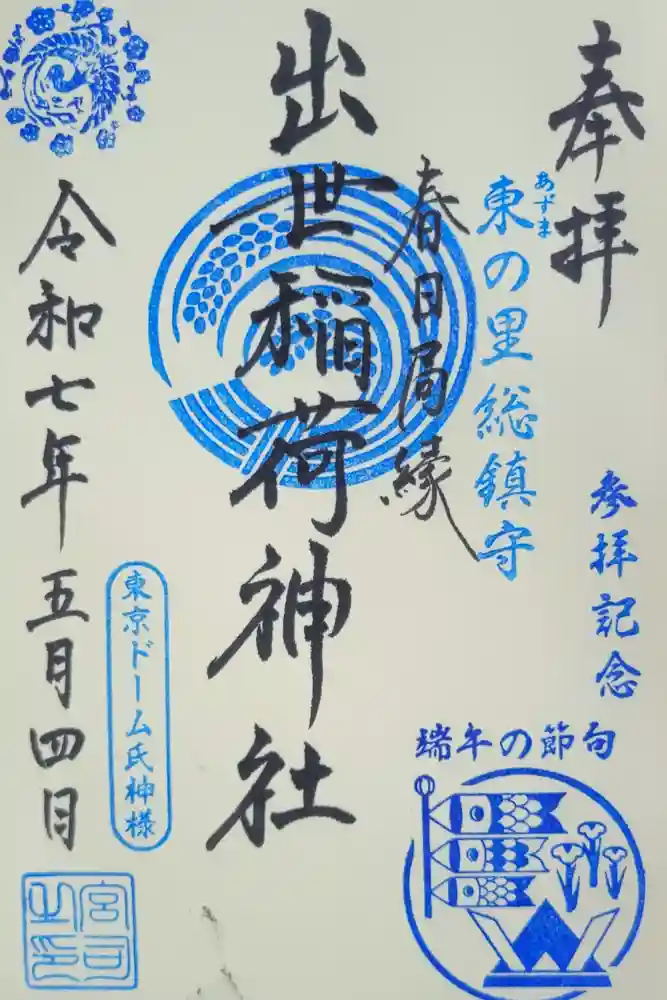 奉拝
参拝記念
あずま
東の里総鎮守
春日局縁
出世稲荷神社
令和七年五月四日
東京ドーム氏神様
端午の節句
宮司之印